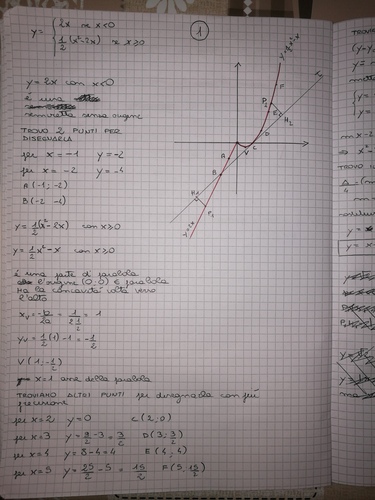 1
y = { 2x se x<0
1/2 (x²-2x) se x≥0
y = 2x con x<0
è una
semiretta senza origine
TROVO 2 PUNTI PER
DISEGNARLA
per x = -1 y = -2
per x = -2 y = -4
A (-1; -2)
B (-2 -4)
y = 1/2 (x²-2x) con x≥0
y = 1/2 x² - x con x≥0
è una parte di parabola
l'origine (0;0) ∈ parabola
ha la concavità volta verso
l'alto
xv = -b/2a = 1/(2 1/2) = 1
yv = 1/2 (1) - 1 = -1/2
V (1; -1/2)
x = 1 asse della parabola
TROVIAMO ALTRI PUNTI per disegnarla con più
precisione
per x=2 y=0 C (2; 0)
per x=3 y = 9/2 - 3 = 3/2 D (3; 3/2)
per x=4 y = 8-4 = 4 E (4; 4)
per x=5 y = 25/2 - 5 = 15/2 F (5; 15/2)
F
P2
E
H2
D
C
V
A
B
H1
P1
y=2x
TROVIA
mx-2
TROVO I